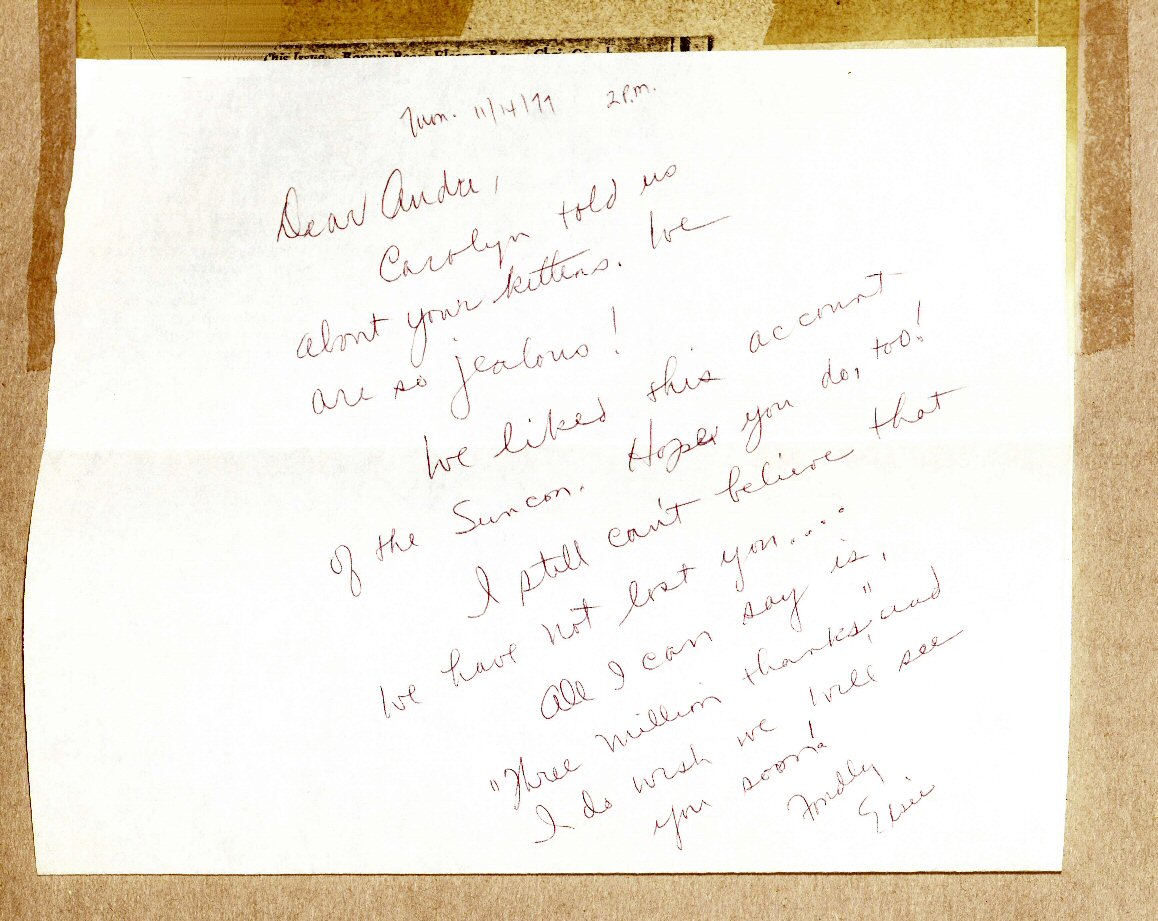 This Issue
Mon. 11/14/77 2 P.M.
Dear Andre,
Carolyn told us
about your kittens. We
are so jealous!
We liked this account
of the Suncon. Hope you do, too!
I still can't believe that
we have not lost you....
All I can say is,
"Three million thanks," and
I do wish we will see
you soon!
Fondly
Elsie